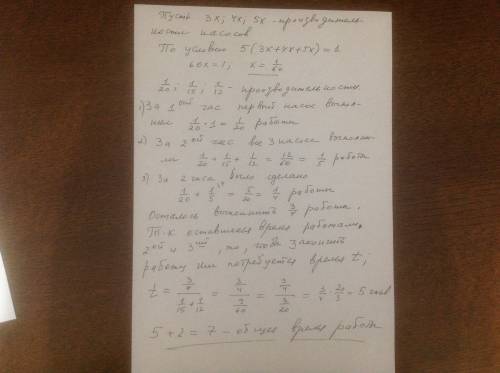 Пусть 3х; 4х; 5х - производитель-
ности насосов
По условию 5(3х+4х+5х)=1
60х=1; х=1/60
1/20; 1/15; 1/12 - производительность.
1) За 1ый час первый насос выпол-
нил 1/20 · 1 = 1/20 работы
2) За 2ой час все 3 насоса выполни-
ли 1/20 + 1/15 + 1/12 = 12/60 = 1/5 работа
3) За 2 часа было сделано
1/20 + 1/5 = 5/20 = 1/4 работы
Осталось выполнить 3/4 работы.
Т.к оставшееся время работали
2ой и 3ий, то, чтобы закончить
работу им потребуется время t;
t = (3/4)/(1/15 + 1/12) = (3/4)/(9/60) = (3/4)/(3/20) = 3/4 · 20/3 = 5 часов
5 + 2 = 7 - общее время работы